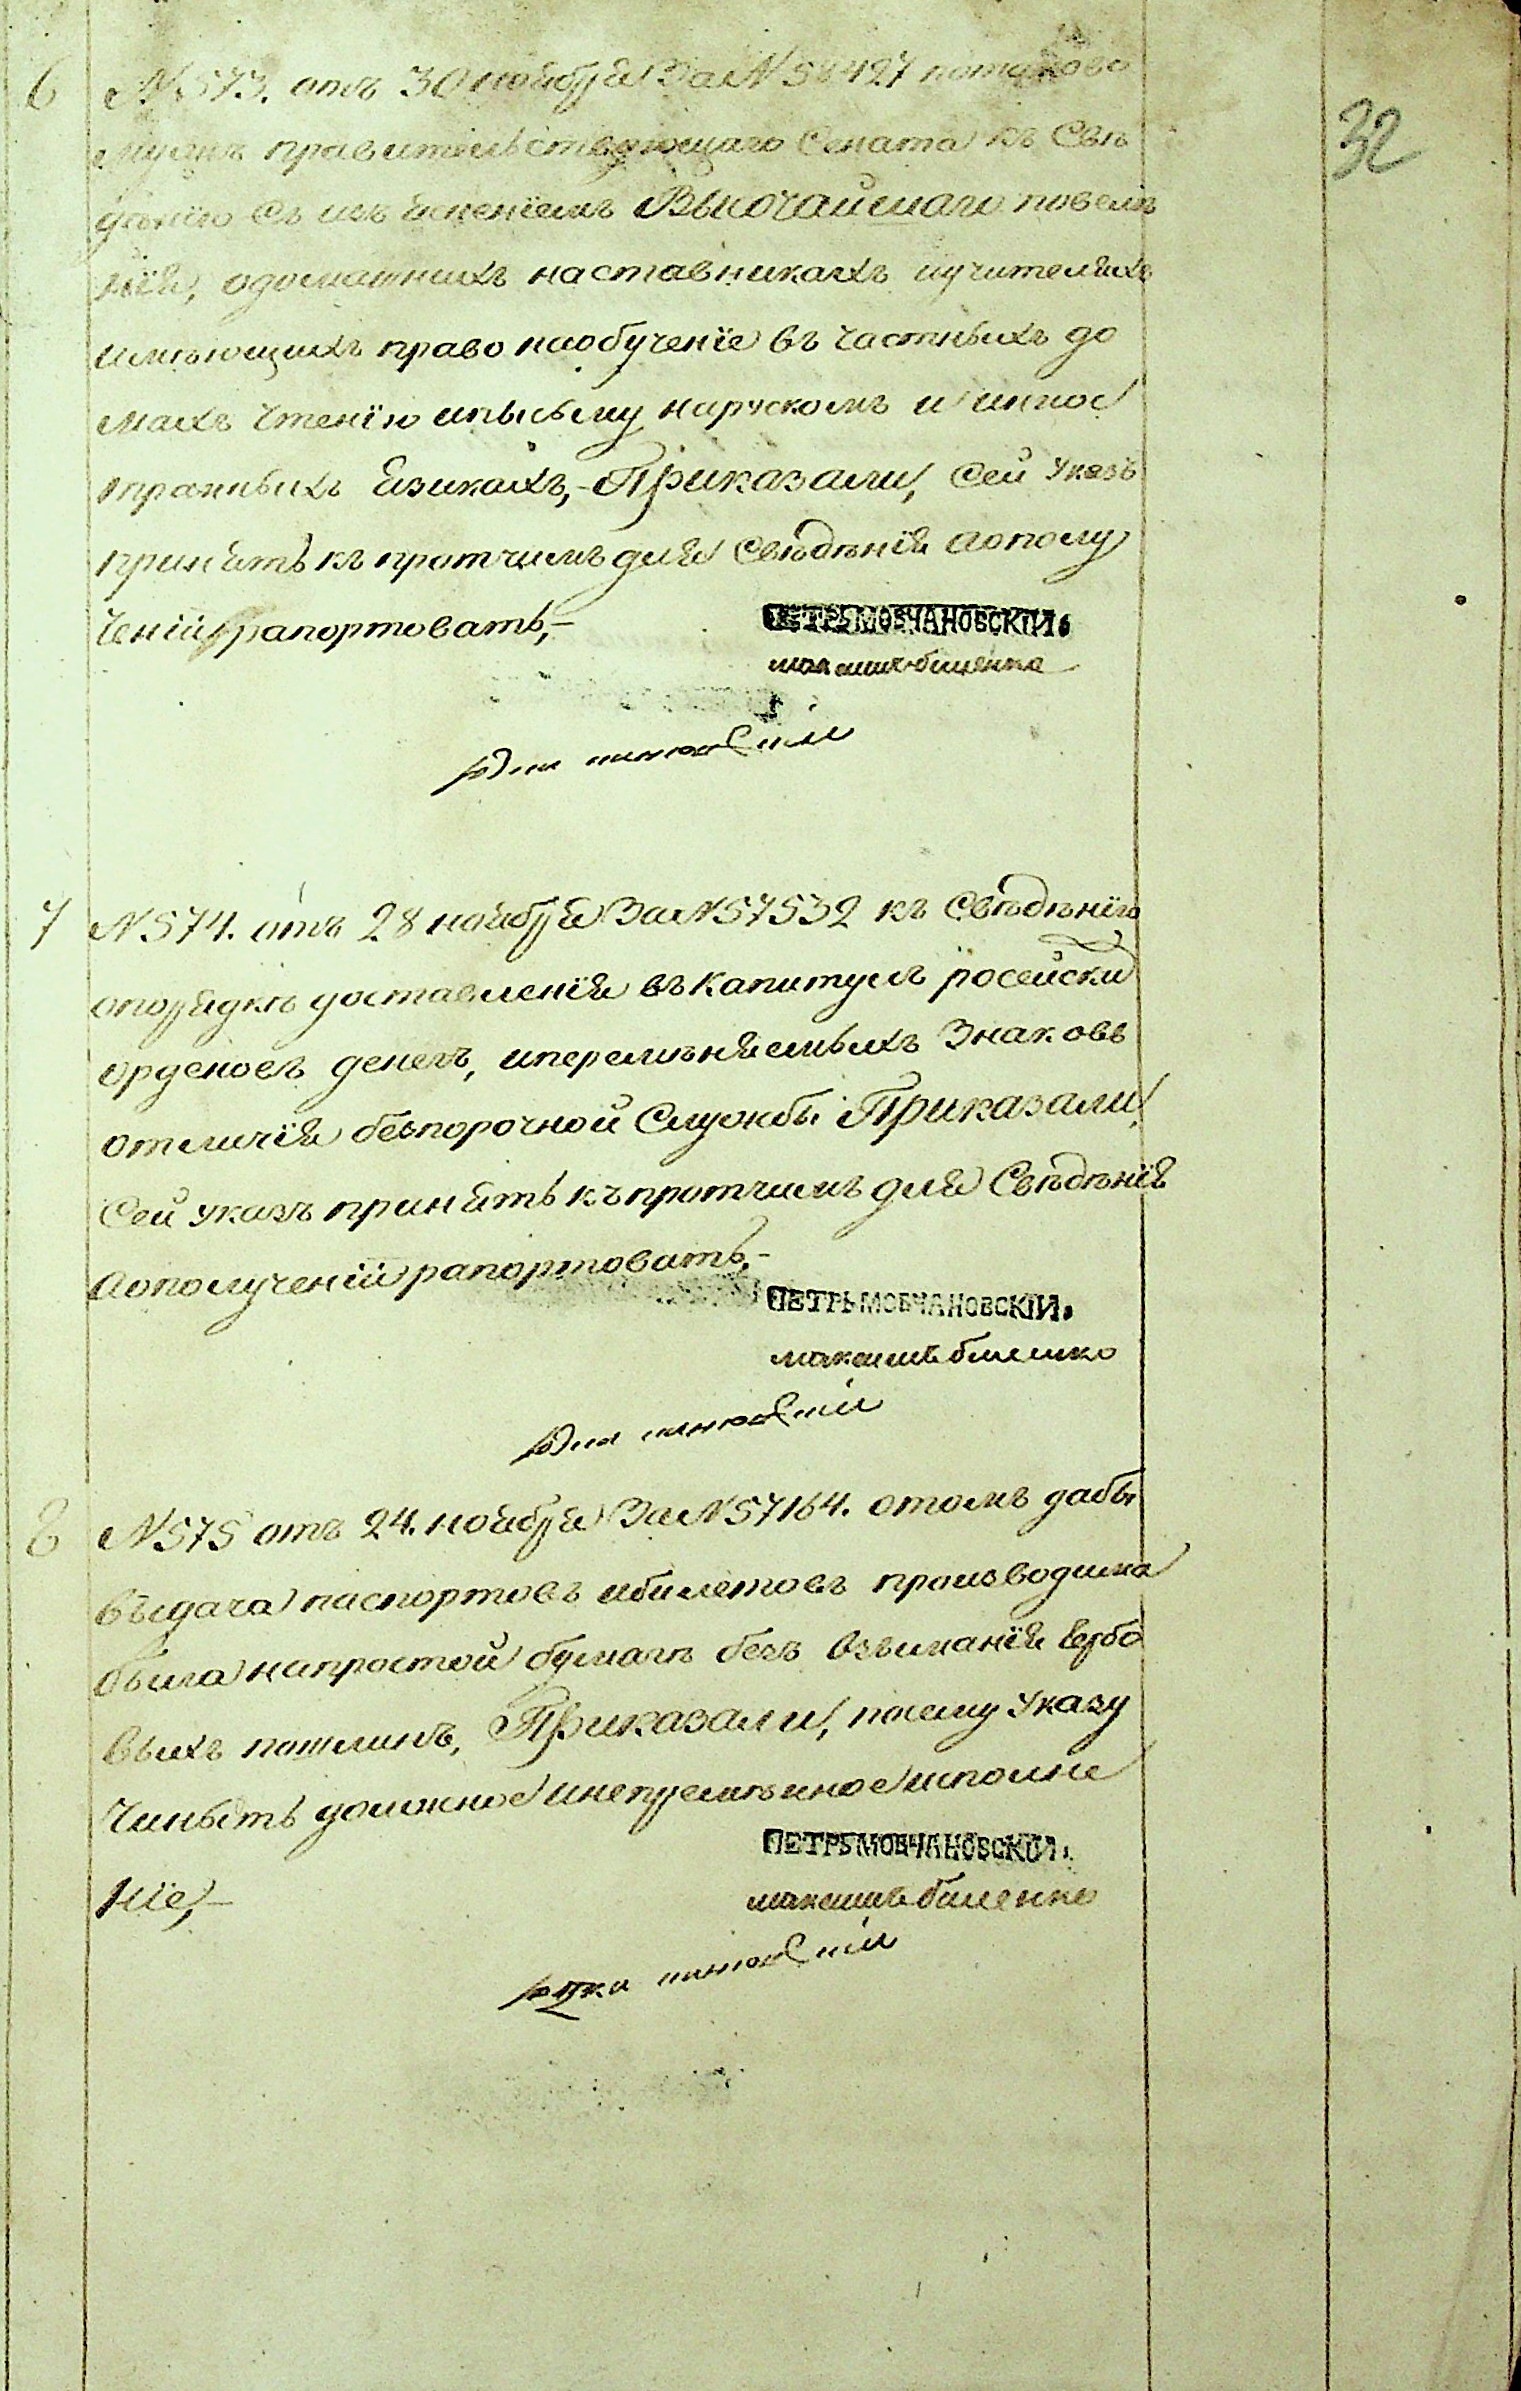 32
6 № 573. отъ 30 ноября За №
правительствующаго Сената къ Свѣ
дѣнію съ изъясненіемъ Высочайшаго повелѣ
нія, одомашнихъ наставникахъ иучителяхъ
имѣющихъ право наобученіе въ частныхъ до
махъ чтенію иписьму нарускомъ и инос
транныхъ Езикахъ,- Приказали, Сей Указъ
принять къ протчимъ для Свѣдѣнія аополу
ченіи рапортовать,-
ПЕТРЬ МОВЧАНОВСКІЙ.
максимъ биленко
7 № 574. отъ 28 ноября За № 57532 къ Свѣдѣнію
опорядкѣ доставленія въ Капитулъ росейский
орденовъ денегъ, иперемѣняемыхъ Знаковъ
отличія безпорочной Службы Приказали,
Сей указъ принять къ протчимъ для Свѣдѣнія
аополученіи рапортовать,-
ПЕТРЬ МОВЧАНОВСКІЙ.
максимъ биленко
8 № 575 отъ 24. ноября За № 57164. отомъ дабы
выдача паспортовъ ибилетовъ производима
была напростой бумагѣ безъ взъиманія Гербо
выхъ пошлинъ, Приказали, посему Указу
Чинить должное инепремѣнное исполне
ніе,-
ПЕТРЬ МОВЧАНОВСКІЙ.
максимъ биленко